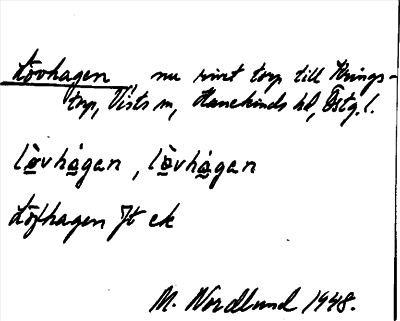 Lövhagen, nu rivet torp till Krings-
torp, Vists sn, Hanekinds hd, Östg. l.
lö̀vhá̱gan, lö̀vhá̱gan
Löfhagen Jt ek
M. Nordlund 1948.